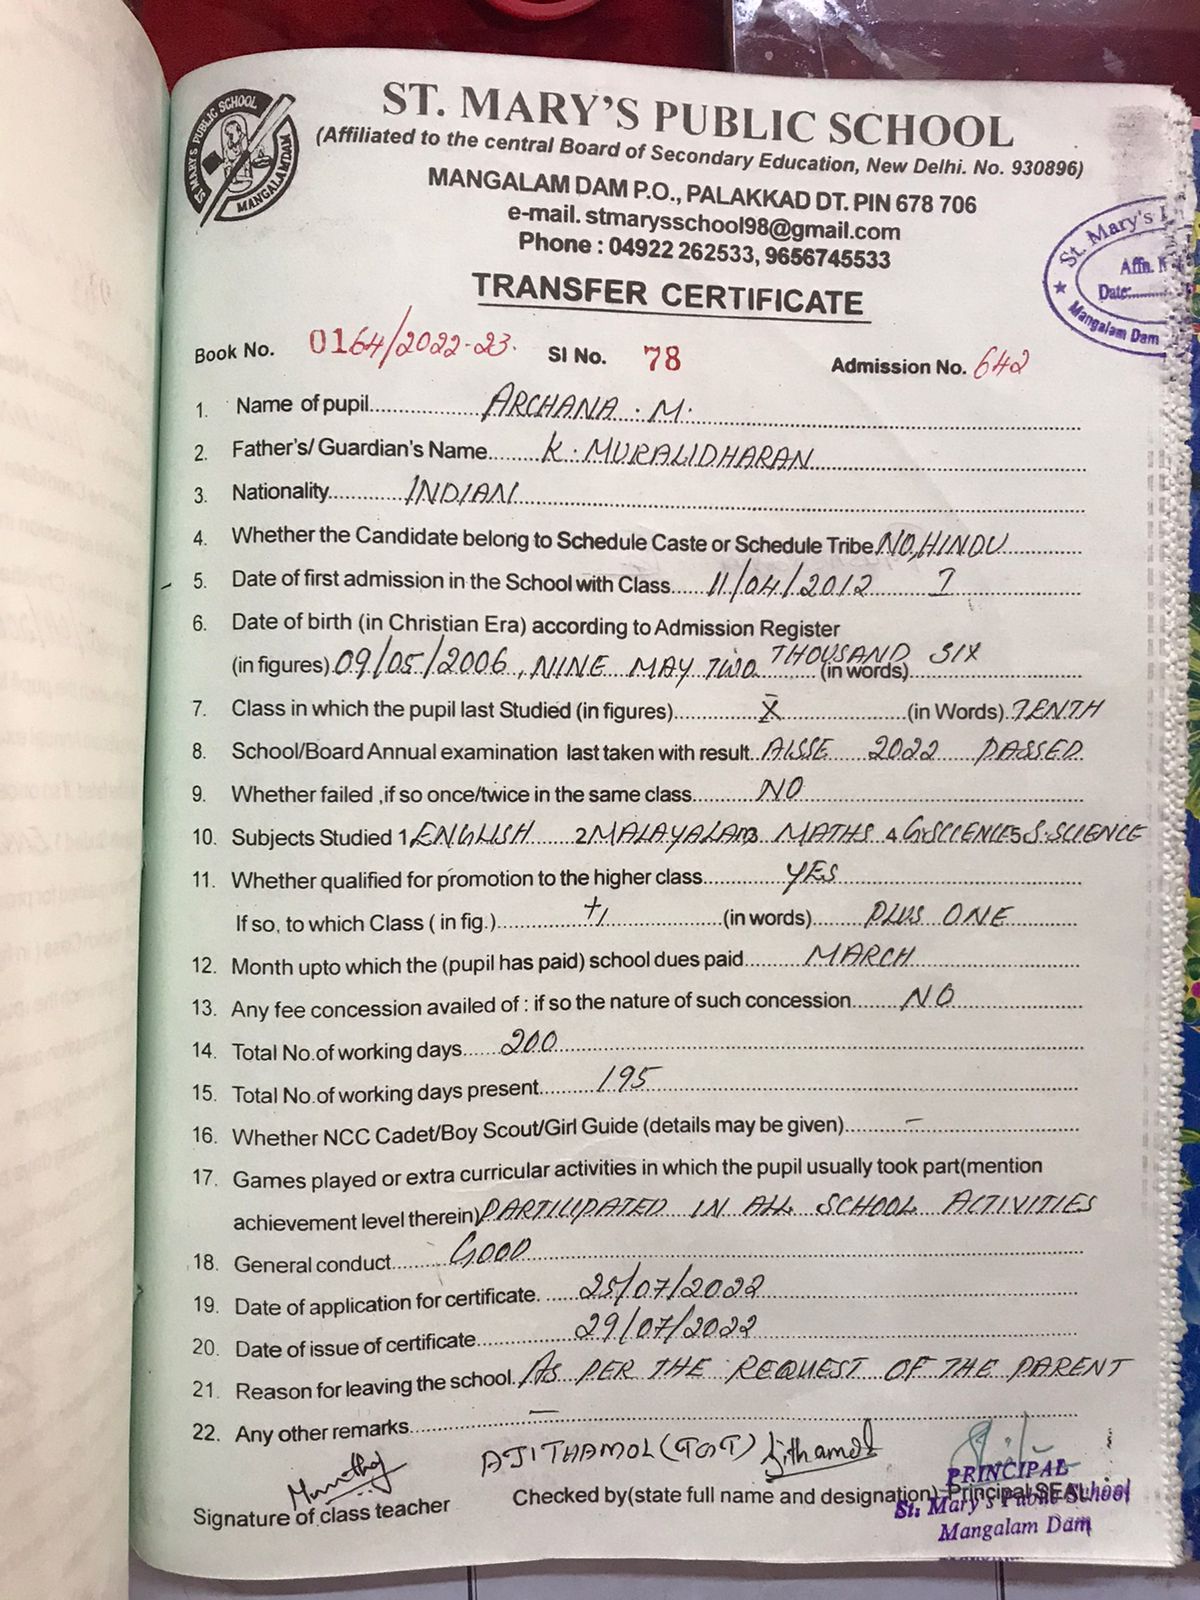 ST. MARY'S PUBLIC SCHOOL
MANGALAMDAM
ST. MARY'S PUBLIC SCHOOL
(Affiliated to the central Board of Secondary Education, New Delhi. No. 930896)
MANGALAM DAM P.O., PALAKKAD DT. PIN 678 706
e-mail. stmarysschool98@gmail.com
Phone : 04922 262533, 9656745533
St. Mary's
Affn.
Date:
Mangalam Dam
TRANSFER CERTIFICATE
Book No. 0164/2022-23. SI No. 78 Admission No. 642
1. Name of pupil ARCHANA . M.
2. Father's/ Guardian's Name K. MURALIDHARAN
3. Nationality INDIAN
4. Whether the Candidate belong to Schedule Caste or Schedule Tribe NO, HINDU
5. Date of first admission in the School with Class 11/04/2012 I
6. Date of birth (in Christian Era) according to Admission Register
(in figures) 09/05/2006, NINE MAY TWO THOUSAND SIX (in words)
7. Class in which the pupil last Studied (in figures) X (in Words) TENTH
8. School/Board Annual examination last taken with result AISSE 2022 PASSED
9. Whether failed ,if so once/twice in the same class NO
10. Subjects Studied 1 ENGLISH 2 MALAYALAM 3 MATHS 4 G.SCIENCE 5 S.SCIENCE
11. Whether qualified for promotion to the higher class YES
If so, to which Class ( in fig.) +1 (in words) PLUS ONE
12. Month upto which the (pupil has paid) school dues paid MARCH
13. Any fee concession availed of : if so the nature of such concession NO
14. Total No.of working days 200
15. Total No.of working days present 195
16. Whether NCC Cadet/Boy Scout/Girl Guide (details may be given) -
17. Games played or extra curricular activities in which the pupil usually took part(mention
achievement level therein) PARTICIPATED IN ALL SCHOOL ACTIVITIES
18. General conduct GOOD
19. Date of application for certificate. 25/07/2022
20. Date of issue of certificate 29/07/2022
21. Reason for leaving the school. AS PER THE REQUEST OF THE PARENT
22. Any other remarks —
AJITHAMOL (TGT)
Signature of class teacher Checked by(state full name and designation) Principal SEAL
PRINCIPAL
St. Mary's Public School
Mangalam Dam